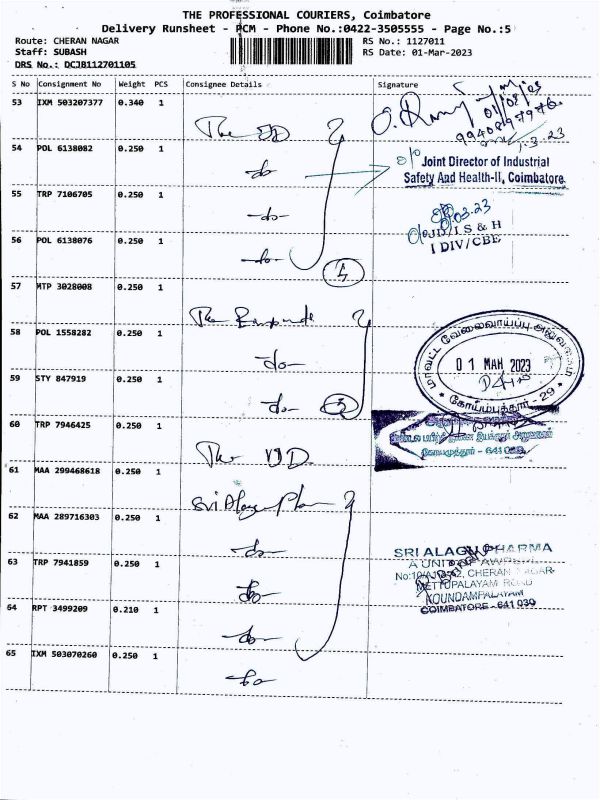 THE PROFESSIONAL COURIERS, Coimbatore
Delivery Runsheet - PCM - Phone No.:0422-3505555 - Page No.:5
Route: CHERAN NAGAR RS No.: 1127011
Staff: SUBASH RS Date: 01-Mar-2023
DRS No.: DCJB112701105
S No Consignment No Weight PCS Consignee Details Signature
53 IXM 503207377 0.340 1
The
99408 97976
54 POL 6138082 0.250 1
do
Joint Director of Industrial
Safety And Health-II, Coimbatore.
55 TRP 7106705 0.250 1
do
03.23
JD/I S & H
I DIV/CBE
56 POL 6138076 0.250 1
do
57 MTP 3028008 0.250 1
The
58 POL 1558282 0.250 1
do
மாவட்ட வேலைவாய்ப்பு அலுவலகம்
01 MAR 2023
கோயம்புத்தூர் - 29
59 STY 847919 0.250 1
do
60 TRP 7946425 0.250 1
The
641 029
61 MAA 299468618 0.250 1
Sri
62 MAA 289716303 0.250 1
do
SRI ALAGU PHARMA
A UNIT OF
CHERAN NAGAR
METTUPALAYAM ROAD
KOUNDAMPALAYAM
COIMBATORE - 641 030
63 TRP 7941859 0.250 1
do
64 RPT 3499209 0.210 1
do
65 IXM 503070260 0.250 1
do